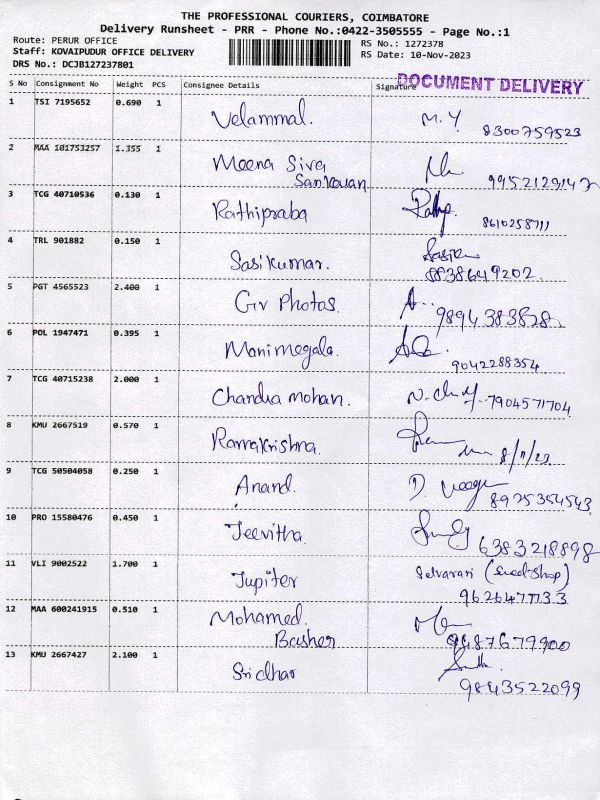 THE PROFESSIONAL COURIERS, COIMBATORE
Delivery Runsheet - PRR - Phone No.:0422-3505555 - Page No.:1
Route: PERUR OFFICE
RS No.: 1272378
Staff: KOVAIPUDUR OFFICE DELIVERY
RS Date: 10-Nov-2023
DRS No.: DCJB127237801
DOCUMENT DELIVERY
S No Consignment No Weight PCS Consignee Details Signature
1 TSI 7195652 0.690 1 Velammal. M.Y 8300759523
2 MAA 101753257 1.355 1 Meena Siva
Sankovan
3 TCG 40710536 0.130 1 Rathipraba 8610258711
4 TRL 901882 0.150 1 Sasikumar. Sasiku
8838649202
5 PGT 4565523 2.400 1 Gv Photos. 9894383828
6 POL 1947471 0.395 1 Manimegala. 9042288354
7 TCG 40715238 2.000 1 Chandra mohan. 7904571704
8 KMU 2667519 0.570 1 Ramakrishna. 8/11/23
9 TCG 50504058 0.250 1 Anand. 8925354543
10 PRO 15580476 0.450 1 Jeevitha. 6383218898
11 VLI 9002522 1.700 1 Jupiter Selvarani
9626477133
12 MAA 600241915 0.510 1 Mohamed.
Basher 9487679900
13 KMU 2667427 2.100 1 Sridhar
9843522099